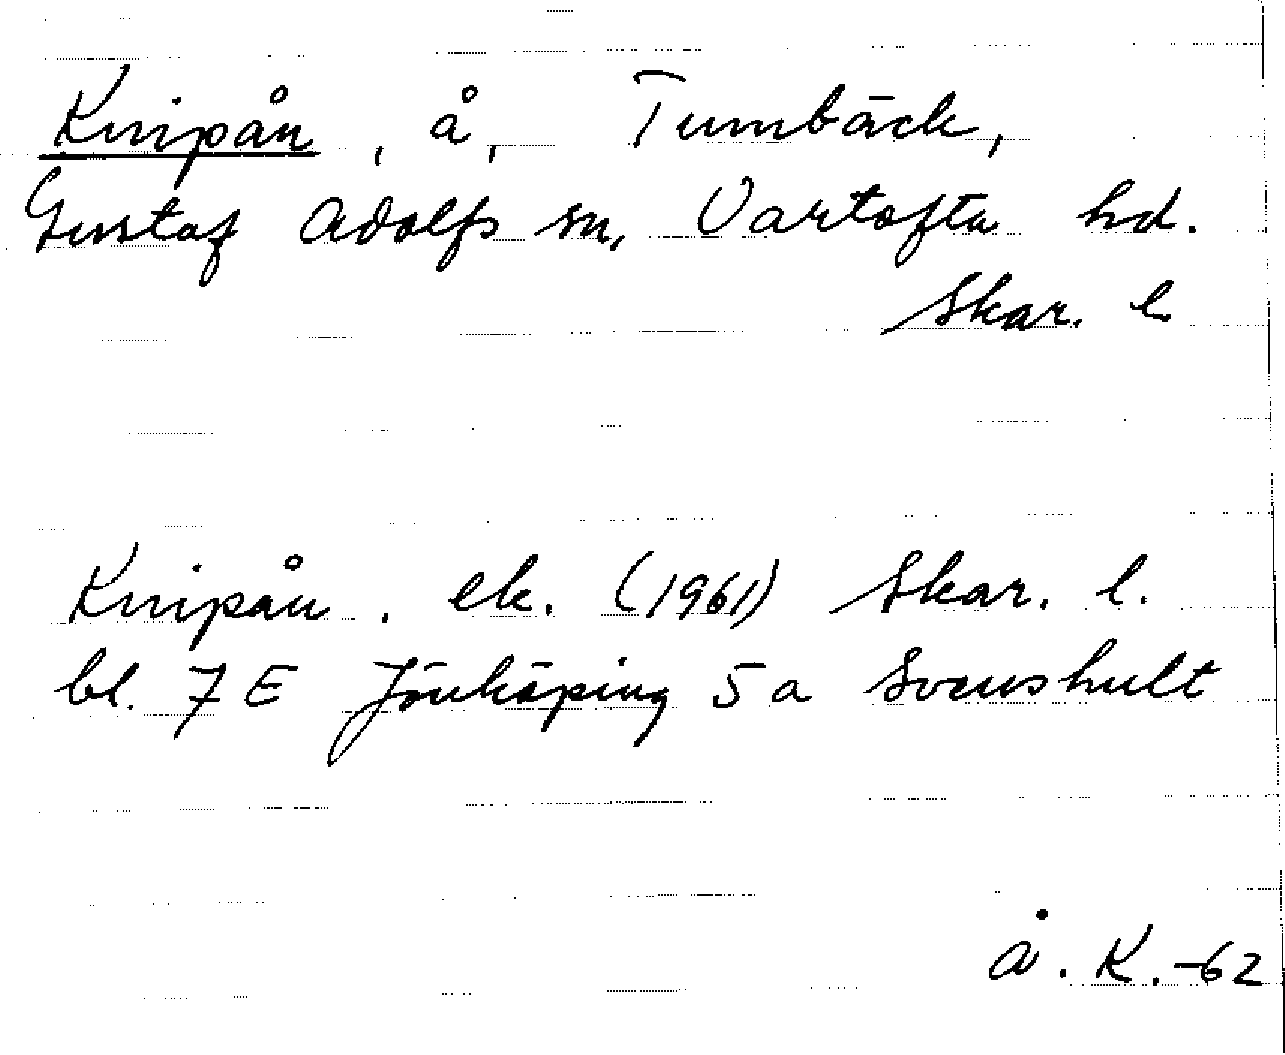 Knipån, å, Tumbäck,
Gustaf Adolfs sn, Vartofta hd.
Skar. l
Knipån. ek. (1961) Skar. l.
bl. 7 E Jönköping 5 a Svenshult
Å. K. -62